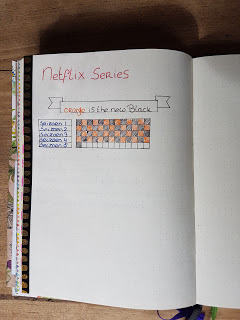 Netflix Series
orange is the new Black
Seizoen 1
Seizoen 2
Seizoen 3
Seizoen 4
Seizoen 5